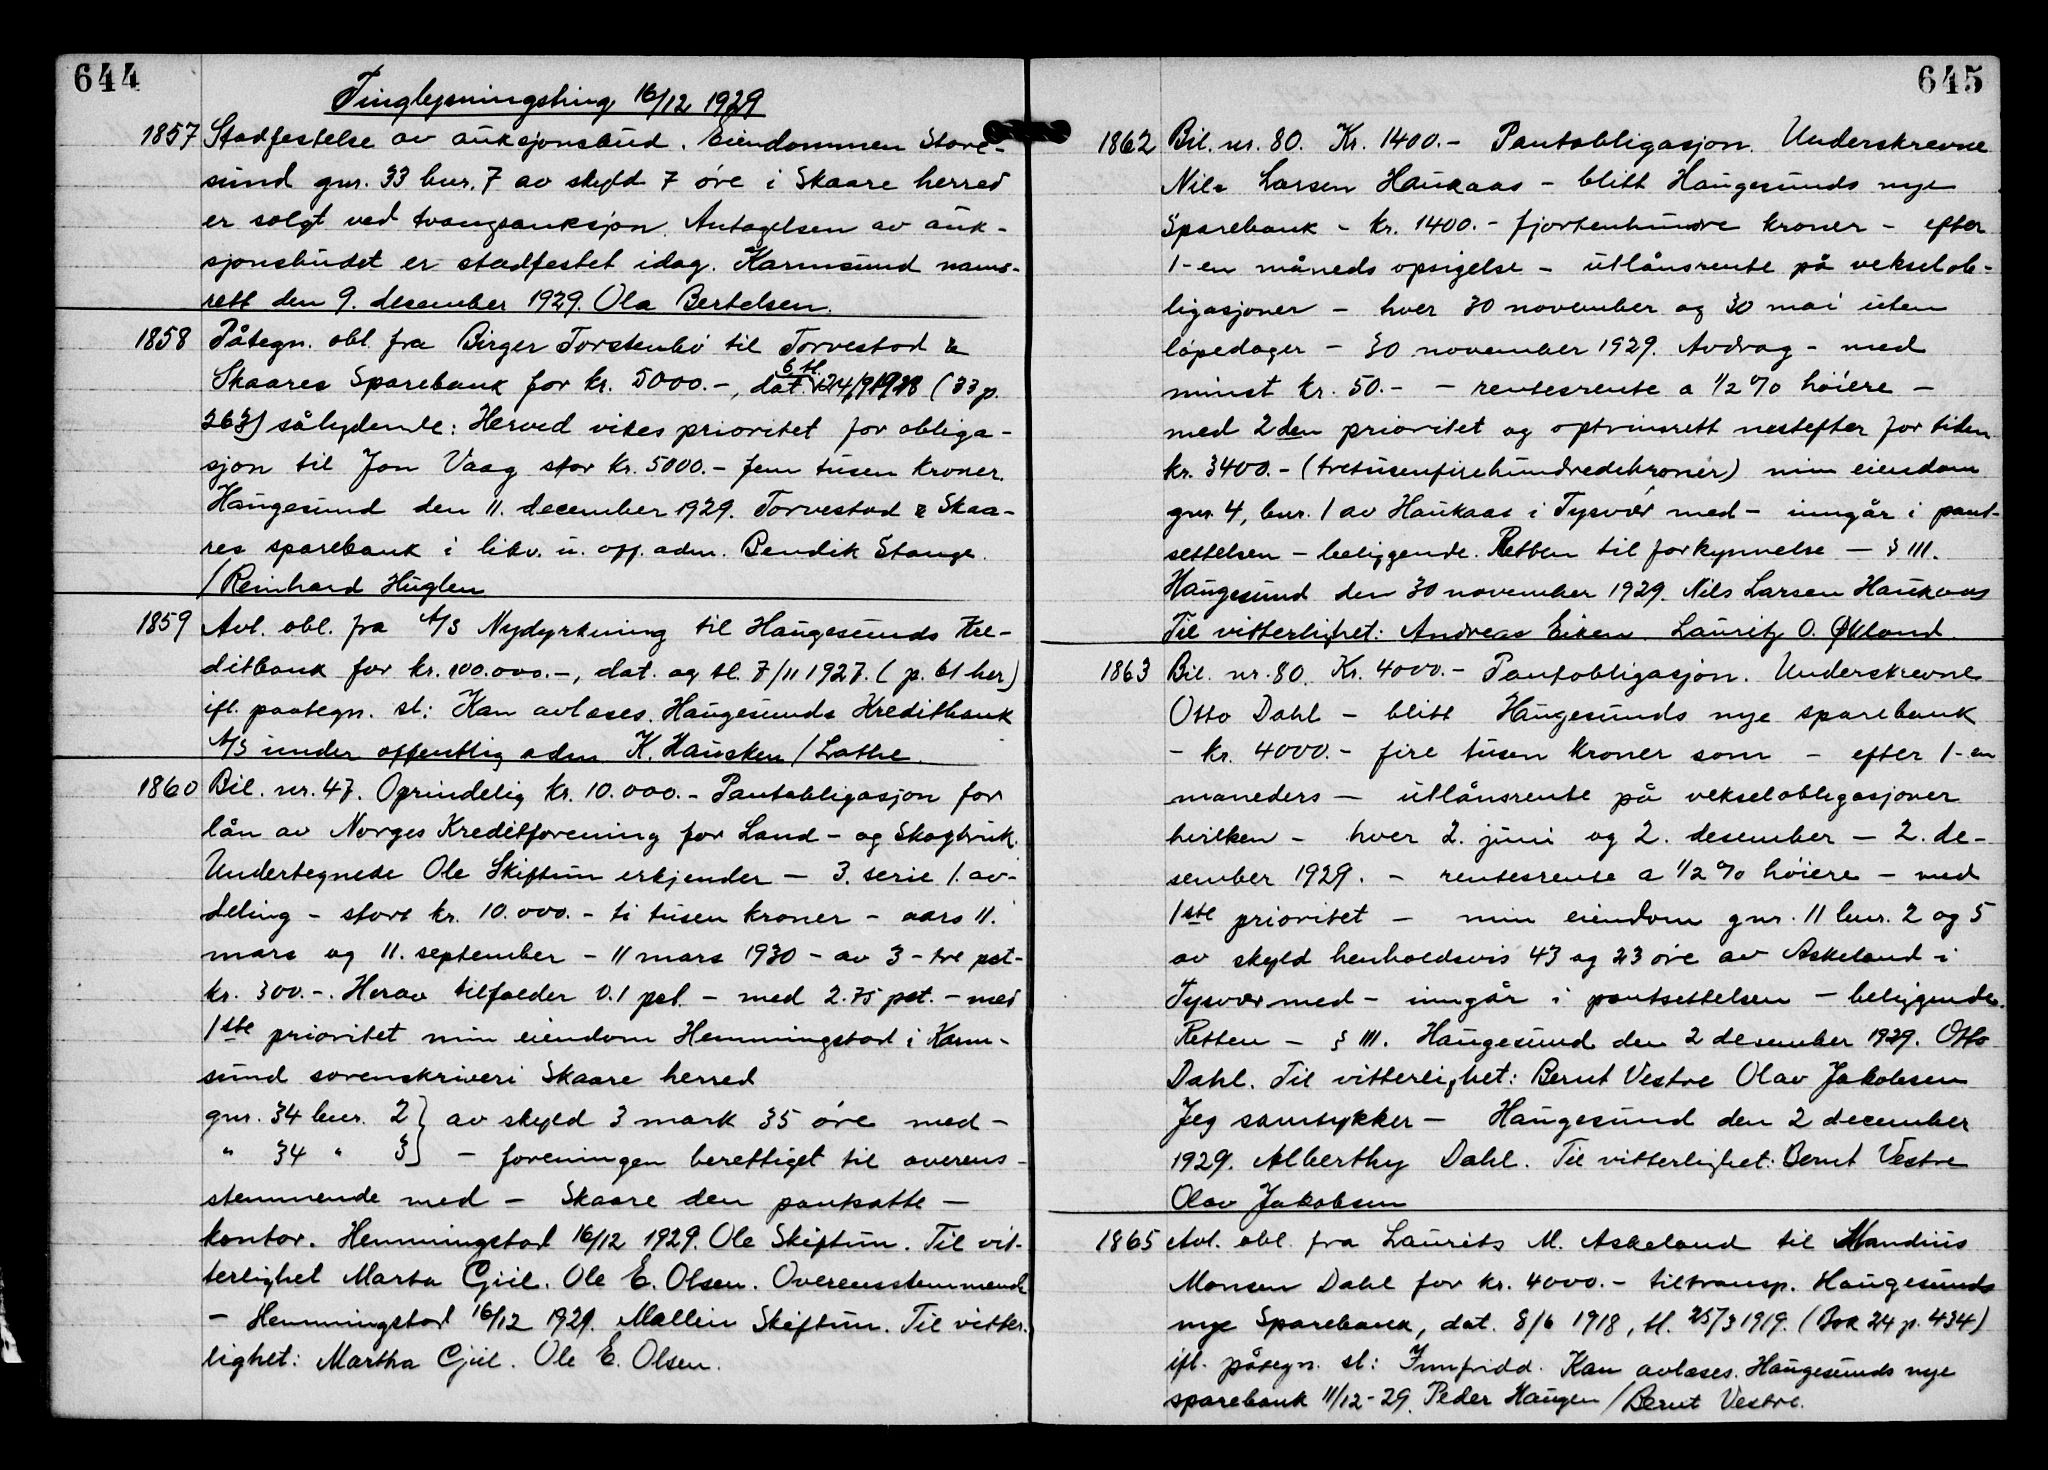 644
Tinglysningsting 16/12 1929
1857 Stadfestelse av auksjonsbud. Eiendommen Store-
sund gnr. 33 bnr. 7 av skyld 7 øre i Skaare herred
er solgt ved tvangsauksjon. Antagelsen av auk-
sjonsbudet er stadfestet idag. Karmsund nams-
rett den 9. desember 1929. Ola Bertelsen.
1858 Påtegn. obl. fra Birger Torstenbø til Torvestad &
Skaares Sparebank for kr. 5000.-, dat. 6 tl. 24/9 1928 (33 p.
263) sålydende: Herved vikes prioritet for obliga-
sjon til Jon Vaag stor kr. 5000.- fem tusen kroner.
Haugesund den 11. december 1929. Torvestad & Skaa-
res sparebank i likv. u. off. adm. Bendik Stange.
/Reinhard Huglen
1859 Avl. obl. fra A/S Nydyrkning til Haugesunds Kre-
ditbank for kr. 100.000.-, dat. og tl. 7/11 1927. (p. 61 her)
ifl. paategn. sl: Kan avlæses. Haugesunds Kreditbank
A/S under offentlig adm. K. Hausken / Lothe.
1860 Bil. nr. 47. Oprindelig kr. 10.000.- Pantobligasjon for
lån av Norges Kreditforening for Land- og Skogbruk.
Undertegnede Ole Skiftun erkjender - 3. serie 1. av-
deling - stort kr. 10.000.- ti tusen kroner - aars 11.
mars og 11. september - 11 mars 1930 - av 3 - tre pct-
kr. 300.-. Herav tilfalder 0.1 pct. - med 2.75 pct. - med
1ste prioritet min eiendom Hemmingstad i Karm-
sund sorenskriveri Skaare herred
gnr. 34 bnr. 2} av skyld 3 mark 35 øre med -
" 34 " 3} - foreningen berettiget til overens-
stemmende med - Skaare den pantsatte -
kontor. Hemmingstad 16/12 1929. Ole Skiftun. Til vit-
terlighet Marta Gjil. Ole E. Olsen. Overensstemmende
- Hemmingstad 16/12 1929. Mallin Skiftun. Til vitter-
lighet: Martha Gjil. Ole E. Olsen.
645
1862 Bil. nr. 80. Kr. 1400.- Pantobligasjon. Underskrevne
Nils Larsen Haukaas - blitt Haugesunds nye
Sparebank - kr. 1400.- fjortenhundre kroner - efter
1-en måneds opsigelse - utlånsrente på vekselob-
ligasjoner - hver 30 november og 30 mai uten
løpedager - 30 november 1929. Avdrag - med
minst kr. 50.- - rentesrente a 1/2 % høiere -
med 2den prioritet og optrinsrett nestefter for tiden
kr. 3400.- (tretusenfirehundredekroner) min eiendom
gnr. 4, bnr. 1 av Haukaas i Tysvær med - inngår i pant-
settelsen - beliggende. Retten til forkynnelse - § 111.
Haugesund den 30 november 1929. Nils Larsen Haukaas
Til vitterlighet: Andreas Eiken. Lauritz O. Økland.
1863 Bil. nr. 80. Kr. 4000.- Pantobligasjon. Underskrevne
Otto Dahl - blitt Haugesunds nye sparebank
- kr. 4000.- fire tusen kroner som - efter 1-en
maneders - utlånsrente på vekselobligasjoner
hvilken - hver 2. juni og 2. desember - 2. de-
sember 1929. - rentesrente a 1/2 % høiere - med
1ste prioritet - min eiendom gnr. 11 bnr. 2 og 5
av skyld henholdsvis 43 og 23 øre av Askeland i
Tysvær med - inngår i pantsettelsen - beliggende.
Retten - § 111. Haugesund den 2 desember 1929. Otto
Dahl. Til vitterlighet: Bernt Vestre Olav Jakobsen
Jeg samtykker - Haugesund den 2 december
1929. Alberthy Dahl. Til vitterlighet: Bernt Vestre
Olav Jakobsen
1865 Avl. obl. fra Laurits M. Askeland til Mandius
Monsen Dahl for kr. 4000.- tiltransp. Haugesunds
nye Sparebank, dat. 8/6 1918, tl. 25/3 1919. (Bok 24 p. 434)
ifl. påtegn. sl: Innfridd. Kan avlæses. Haugesunds nye
sparebank 11/12-29. Peder Haugen / Bernt Vestre.